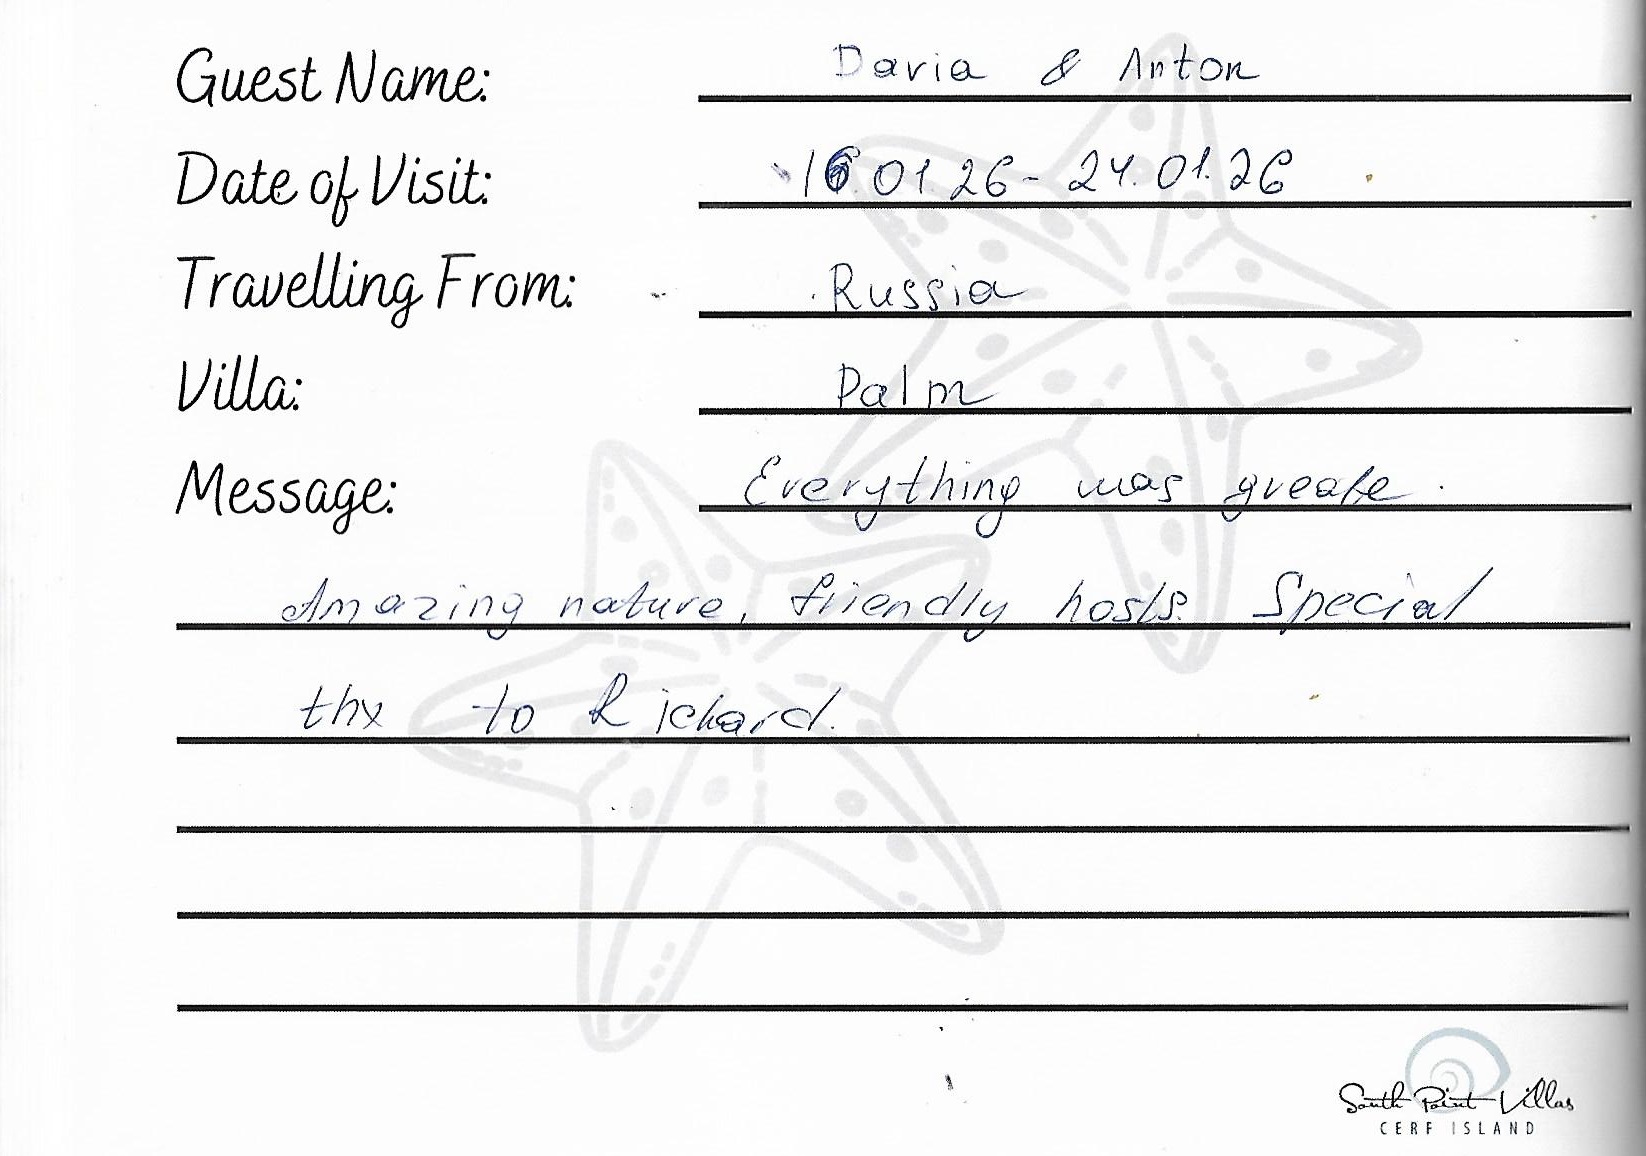 Guest Name: Daria & Anton
Date of Visit: 16 01.26 - 24.01.26
Travelling From: Russia
Villa: Palm
Message: Everything was greate.
Amazing nature, friendly hosts. Special
thx to Richard.
South Point Villas
CERF ISLAND